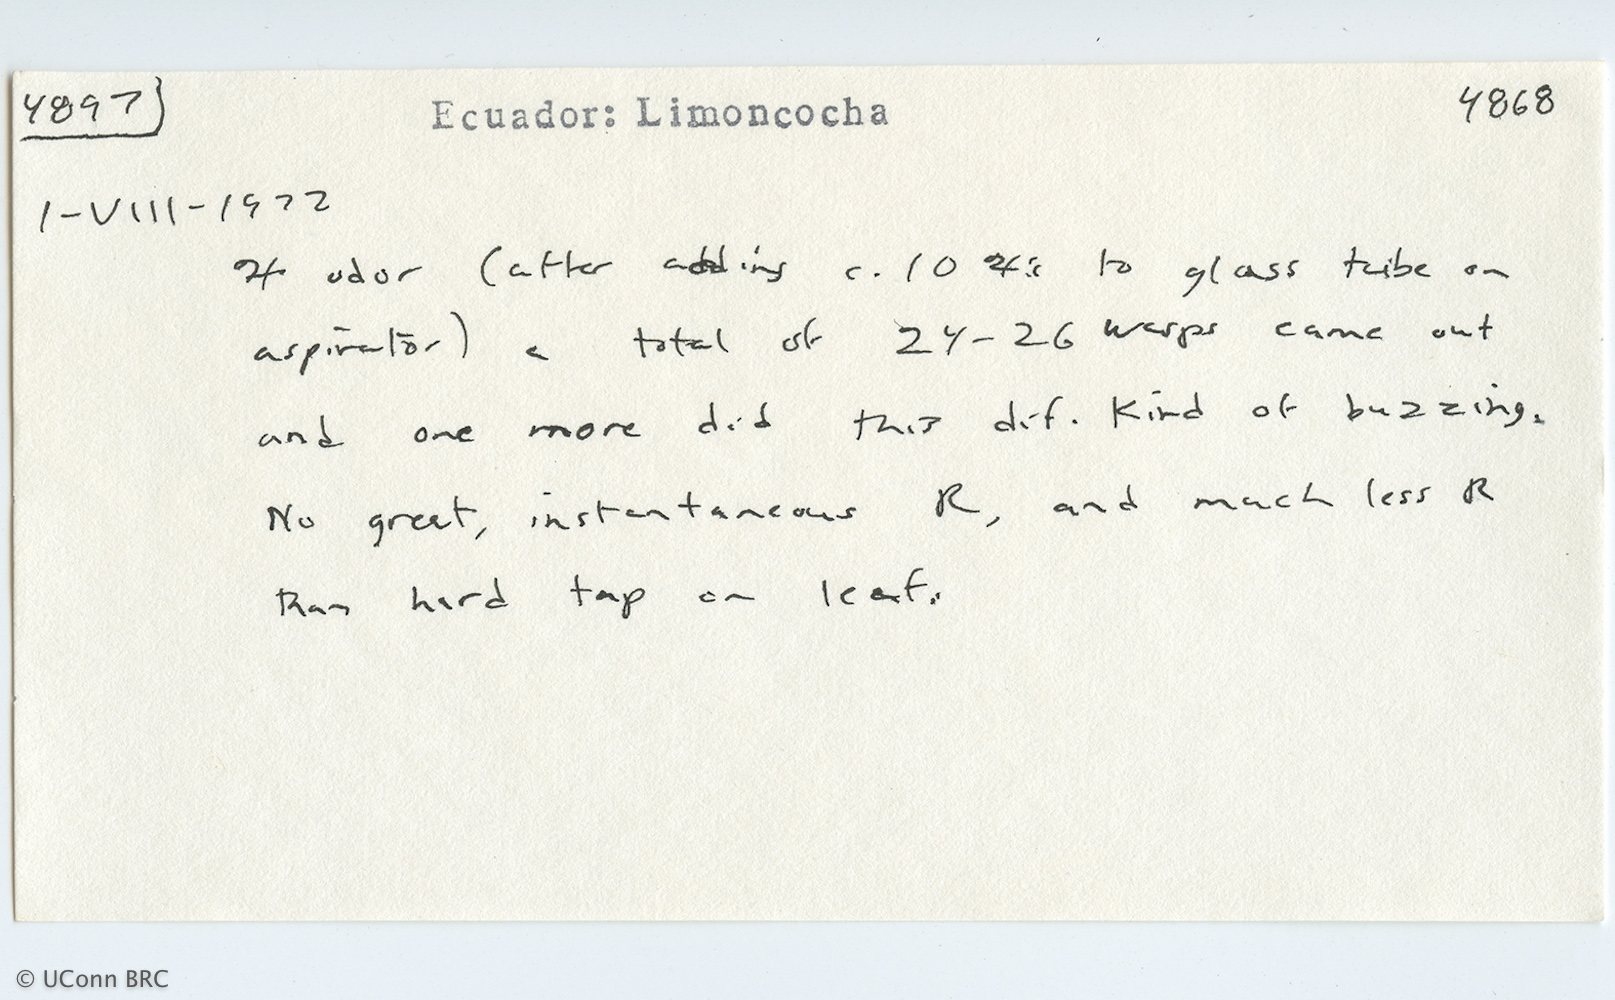 4897 Ecuador: Limoncocha 4868
1-VIII-1972
odor (after adding c. 10 to glass tube on
aspirator) a total of 24-26 wasps came out
and one more did this dif. kind of buzzing.
No great, instantaneous R, and much less R
than hard tap on leaf.
© UConn BRC